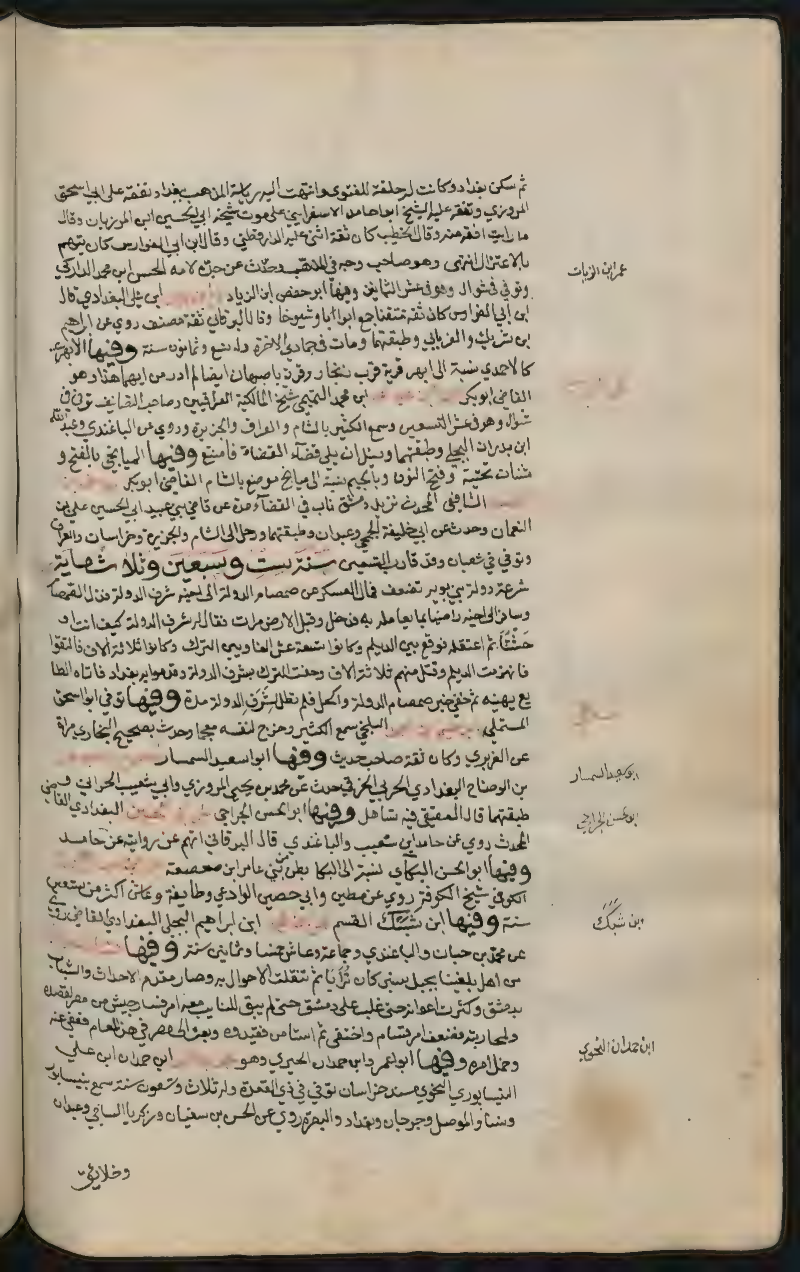 ثم سكن بغداد وكانت له حلقة للفتوى وانتهت اليه رياسة المذهب ببغداد تفقه على ابي اسحق
المروزي وتفقه عليه الشيخ ابو حامد الاسفرايني على موت شيخه ابي الحسين ابن المرزبان وقال
ما رايت افقه منه وقال الخطيب كان ثقة اثنى عليه الدارقطني وقال ابن ابي الفوارس كان يتهم
بالاعتزال انتهى وهو صاحب وجه في المذهب وحدث عن جده لامه الحسن ابن محمد الداركي
عمر ابن الزيات
وتوفي في شوال وهو في عشر الثمانين وفيها ابو حفص ابن الزيات ابن علي البغدادي قال
ابن ابي الفوارس كان ثقة متقنا جمع ابوابا وشيوخا وقال البرقاني ثقة مصنف روى عن ابراهيم
بن شريك والفريابي وطبقتهما ومات في جمادي الاخرة وله تسع وثمانون سنة وفيها الابهري
كالاحمدي نسبة الى ابهر قرية قرب زنجار وقرية باصبهان ايضا لم ادر من ايهما هذا وهو
القاضي ابو بكر ابن محمد التميمي شيخ المالكية العراقيين وصاحب التصانيف توفي في
شوال وهو في عشر التسعين وسمع الكثير بالشام والعراق والجزيرة وروى عن الباغندي وعبد الله
ابن بدران البجلي وطبقتهما وسئل ان يلي قضاء القضاة فامتنع وفيها الميانجي بالفتح و
مثناة تحتية وفتح النون وبالجيم نسبة الى ميانج موضع بالشام القاضي ابو بكر
الشافعي المحدث نزيل دمشق ناب في القضاء مدة عن قاضي بني عبيد ابي الحسين علي بن
النعمان وحدث عن ابي خليفة الجمحي وعبدان وطبقتهما ورحل الى الشام والجزيرة وخراسان والعراق
وتوفي في شعبان وقد قارب التسعين سنة ست وسبعين وثلاثماية
شرعة دولة بني بويه تضعف فمال العسكر عن صمصام الدولة الى اخيه شرف الدولة فذل الصمصام
وسافر الى اخيه راضيا بما يعامله به فدخل وقبل الارض مرات فقال له شرف الدولة كيف انت او
حشتنا ثم اعتقله فوقع بين الديلم وكانوا تسعة عشر الفا وبين الترك وكانوا ثلاثة الاف فالتقوا
فانهزمت الديلم وقتل منهم ثلاثة الاف وحفت الترك بشرف الدولة وقدموا به بغداد فاتاه الطا
يع يهنيه ثم خفي خبر صمصام الدولة واكحل فلم تطل لشرف الدولة مدة وفيها توفي ابو اسحق
المستملي البلخي سمع الكثير وخرج لنفسه معجما وحدث بصحيح البخاري مرات
عن الفربري وكان ثقة صاحب حديث وفيها ابو سعيد السمسار
ابو سعيد السمسار
بن الوضاح البغدادي الحربي الحرفي حدث عن محمد بن يحيى المروزي وابي شعيب الحراني و
ابو الحسن الجراحي
طبقتهما قال العتيقي فيه تساهل وفيها ابو الحسن الجراحي البغدادي القاضي
المحدث روى عن حامد ابن شعيب والباغندي قال البرقاني اتهم عن روايته عن حامد
وفيها ابو الحسن البكائي نسبة الى البكا بطن من بني عامر ابن صعصعة
الكوفي شيخ الكوفة روى عن مطين وابي حصين الوادعي وطايفة وعاش اكثر من تسعين
ابن سبنك
سنة وفيها ابن سبنك القسم ابن ابراهيم البجلي البغدادي القاضي روى
عن محمد بن حبان والباغندي وجماعة وعاش خمسا وثمانين سنة وفيها
من اهل بلفيتا بجبل سنير كان ترابا ثم تنقلت الاحوال به وصار مقدم الاحداث والشباب
بدمشق وكثرت اعوانه حتى غلب على دمشق حتى لم يبق للنايب معه امر فسار جيش من مصر لقصده
ولمحاربته فضعف امر قسام واختفى ثم استامن فقيدوه وبعثوا الى مصر في هذا العام فعفي عنه
ابن حمدان النحوي
وخمل امره وفيها ابو عمرو ابن حمدان الحيري وهو ابن حمدان ابن علي
النيسابوري النحوي مسند خراسان توفي في ذي القعدة وله ثلاث وتسعون سنة سمع بنيسابور
ونسا والموصل وجرجان وبغداد والبصرة روى عن الحسن بن سفيان وزكريا الساجي وعبدان
وخلائق